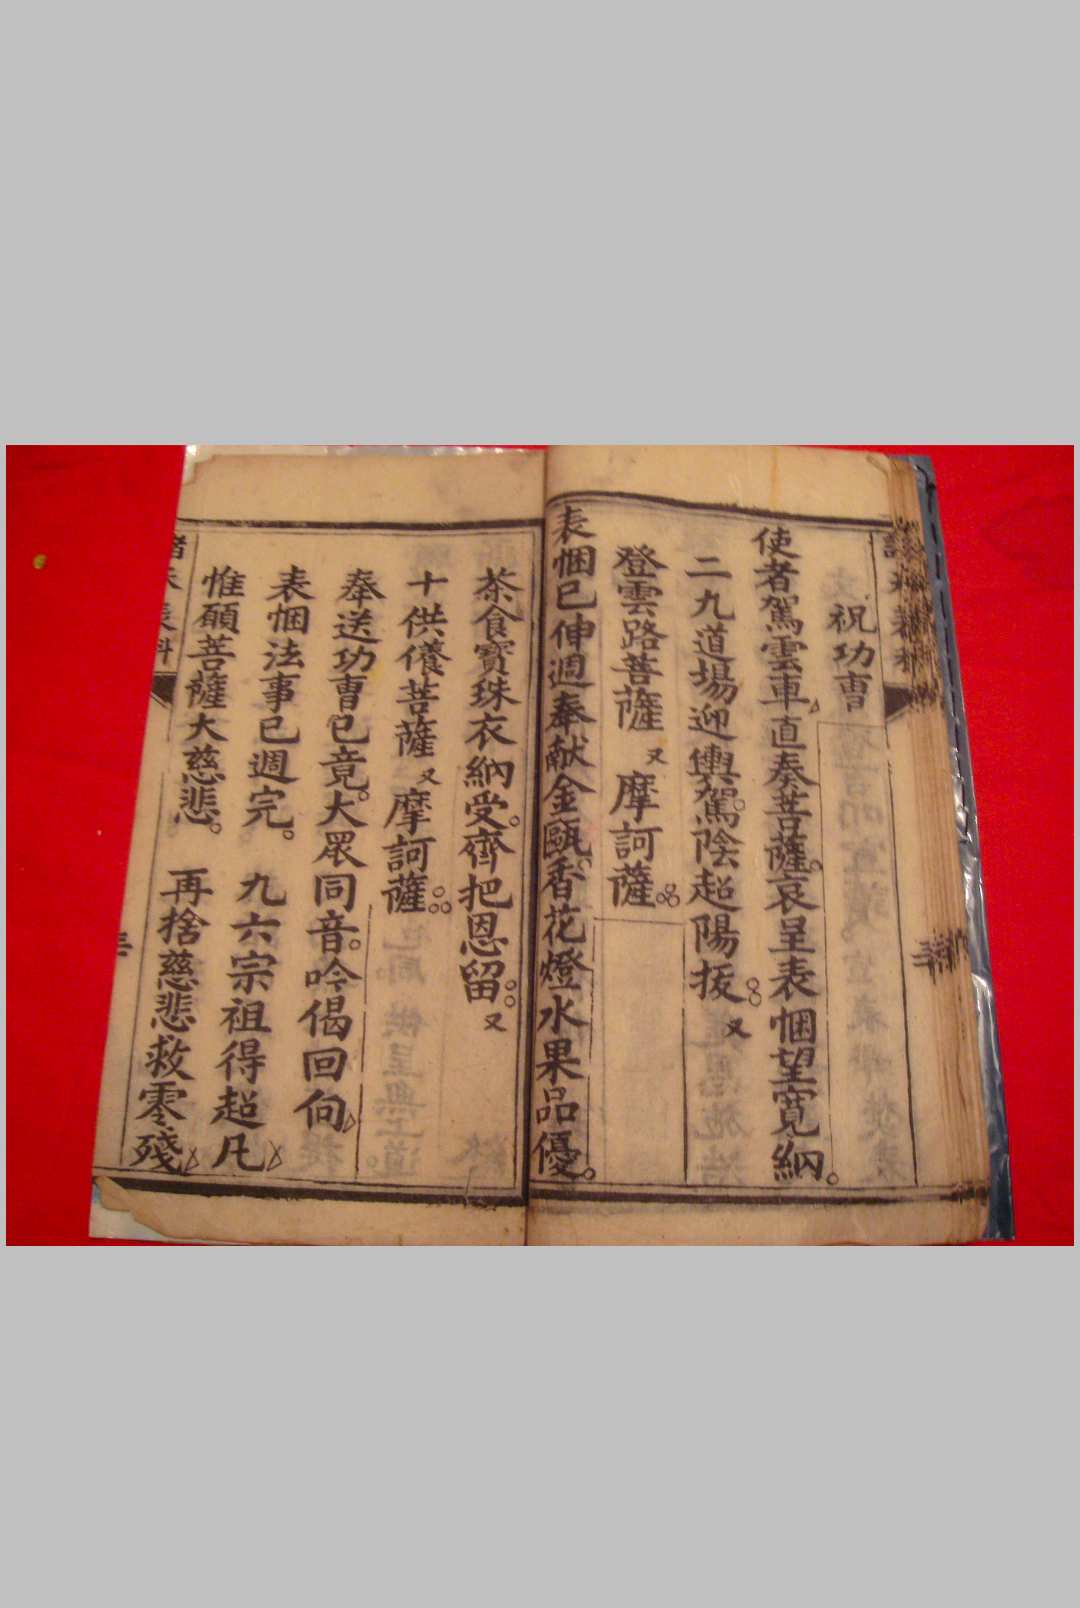 祝功曹
使者駕雲車直奏菩薩。哀呈表悃望寬納。
二九道場迎輿駕。陰超陽拔 又
登雲路菩薩 又 摩訶薩
表悃已伸週奉献金甌。香花燈水果品優。
茶食寶珠衣納受。齊把恩留 又
十供儀菩薩 又 摩訶薩
奉送功曹已竟。大眾同音。吟偈回向
表悃法事已週完。 九六宗祖得超凡
惟願菩薩大慈悲。 再捨慈悲救零殘